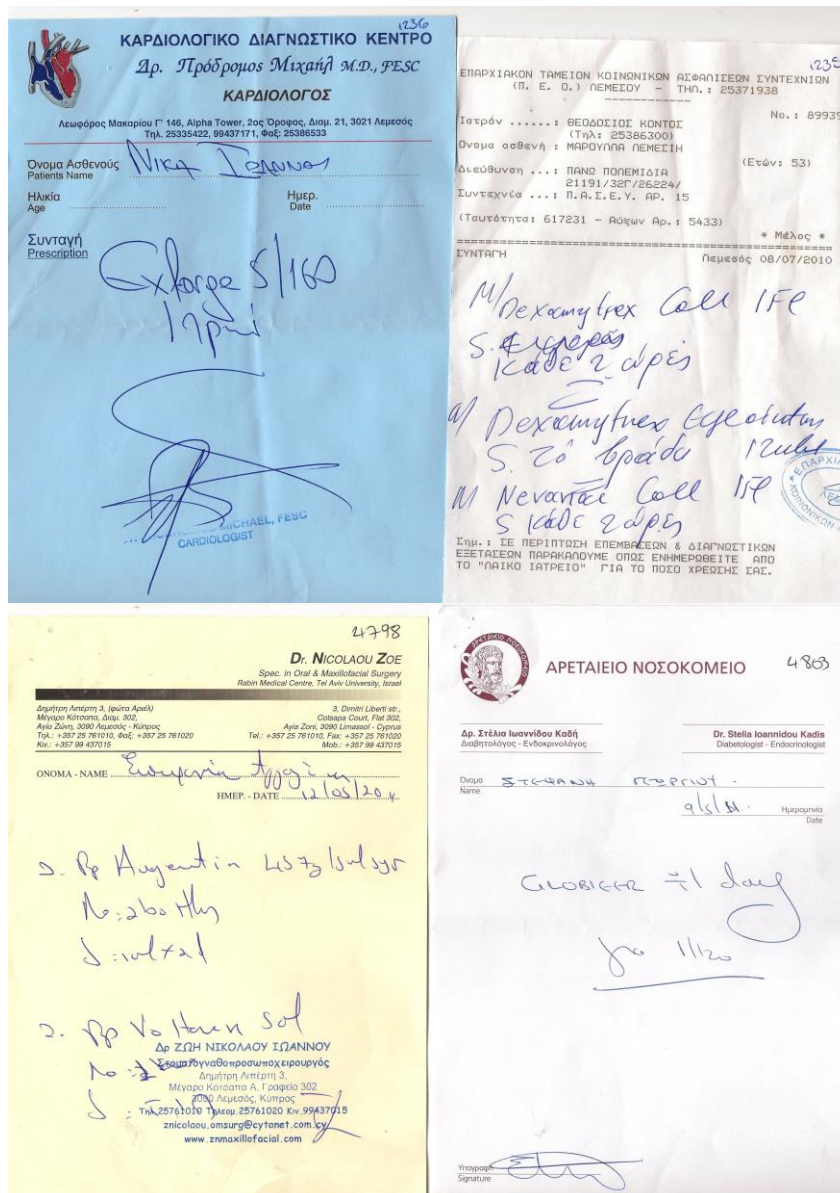 1236
ΚΑΡΔΙΟΛΟΓΙΚΟ ΔΙΑΓΝΩΣΤΙΚΟ ΚΕΝΤΡΟ
Δρ. Πρόδρομος Μιχαήλ M.D., FESC
ΚΑΡΔΙΟΛΟΓΟΣ
Λεωφόρος Μακαρίου Γ' 146, Alpha Tower, 2ος Όροφος, Διαμ. 21, 3021 Λεμεσός
Τηλ. 25335422, 99437171, Φαξ: 25386533
Όνομα Ασθενούς
Patients Name
Ηλικία
Age
Ημερ.
Date
Συνταγή
Prescription
Exforge 5/160
1 πρωί
MICHAEL, FESC
CARDIOLOGIST
1235
ΕΠΑΡΧΙΑΚΟΝ ΤΑΜΕΙΟΝ ΚΟΙΝΩΝΙΚΩΝ ΑΣΦΑΛΙΣΕΩΝ ΣΥΝΤΕΧΝΙΩΝ
(Π. Ε. Ο.) ΛΕΜΕΣΟΥ - ΤΗΛ.: 25371938
Ιατρόν ......: ΘΕΟΔΟΣΙΟΣ ΚΟΝΤΟΣ No.: 89939
(Τηλ: 25386300)
Ονομα ασθενή : ΜΑΡΟΥΛΛΑ ΛΕΜΕΣΙΗ (Ετών: 53)
Διεύθυνση ...: ΠΑΝΩ ΠΟΛΕΜΙΔΙΑ
21191/32Γ/26224/
Συντεχνία ...: Π.Α.Σ.Ε.Υ. ΑΡ. 15
(Ταυτότητα: 617231 - Αύξων Αρ.: 5433)
* Μέλος *
ΣΥΝΤΑΓΗ Λεμεσός 08/07/2010
Dexamytrex Coll 1Fl
S.
κάθε 2 ώρες
Dexamytrex
S. το βράδυ
Coll 1Fl
S κάθε 2 ώρες
Σημ.: ΣΕ ΠΕΡΙΠΤΩΣΗ ΕΠΕΜΒΑΣΕΩΝ & ΔΙΑΓΝΩΣΤΙΚΩΝ
ΕΞΕΤΑΣΕΩΝ ΠΑΡΑΚΑΛΟΥΜΕ ΟΠΩΣ ΕΝΗΜΕΡΩΘΕΙΤΕ ΑΠΟ
ΤΟ "ΛΑΙΚΟ ΙΑΤΡΕΙΟ" ΓΙΑ ΤΟ ΠΟΣΟ ΧΡΕΩΣΗΣ ΣΑΣ.
4798
Dr. NICOLAOU ZOE
Spec. in Oral & Maxillofacial Surgery
Rabin Medical Centre, Tel Aviv University, Israel
Δημήτρη Λιπέρτη 3, (φώτα Αριέλ)
Μέγαρο Κότσαπα, Διαμ. 302,
Αγία Ζώνη, 3090 Λεμεσός - Κύπρος
Τηλ.: +357 25 761010, Φαξ: +357 25 761020
Κιν.: +357 99 437015
3, Dimitri Liberti str.,
Cotsapa Court, Flat 302,
Ayia Zoni, 3090 Limassol - Cyprus
Tel.: +357 25 761010, Fax: +357 25 761020
Mob.: +357 99 437015
ΟΝΟΜΑ - NAME
ΗΜΕΡ. - DATE
Rp Augmentin
Rp Voltaren Sol
Δρ ΖΩΗ ΝΙΚΟΛΑΟΥ ΙΩΑΝΝΟΥ
Στοματογναθοπροσωποχειρουργός
Δημήτρη Λιπέρτη 3,
Μέγαρο Κότσαπα Α, Γραφείο 302
3090 Λεμεσός, Κύπρος
Τηλ.25761010 Τηλεομ.25761020 Κιν.99437015
znicolaou.omsurg@cytanet.com.cy
www.znmaxillofacial.com
4803
ΑΡΕΤΑΙΕΙΟ ΝΟΣΟΚΟΜΕΙΟ
Δρ. Στέλια Ιωαννίδου Καδή
Διαβητολόγος - Ενδοκρινολόγος
Dr. Stelia Ioannidou Kadis
Diabetologist - Endocrinologist
Όνομα
Name
9/5/11
Ημερομηνία
Date
day
1/120
Υπογραφή
Signature